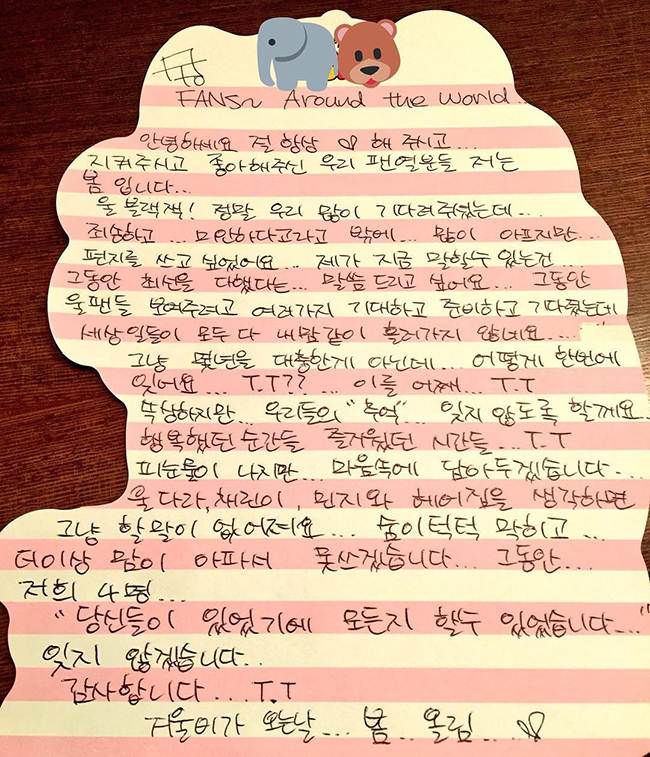 FANS~ Around the world...
안녕하세요 절 항상 ♡ 해 주시고
지켜주시고 좋아해주신 우리 팬 여러분들 저는
봄 입니다...
울 블랙잭! 정말 우리 많이 기다려줬었는데...
죄송하고... 미안하다고라고 밖에... 맘이 아프지만...
편지를 쓰고 싶었어요... 제가 지금 말할수 있는건...
그동안 최선을 다했다는... 말씀 드리고 싶어요... 그동안
울 팬들 보여주려고 여러가지 기대하고 준비하고 기다렸는데
세상일들이 모두 다 내맘같이 흘러가지 않네요......
그냥 몇년을 대충한게 아닌데... 어떻게 한번에
잊어요... T.T?? ... 이를 어째... T.T
뚝성하지만... 우리들의 "추억"... 잊지 않도록 할께요
행복했던 순간들 즐거웠던 시간들... T.T
피눈물이 나지만... 마음속에 담아두겠습니다...
울 다라, 채린이, 민지와 헤어짐을 생각하면
그냥 할말이 없어져요... 숨이턱턱 막히고...
더이상 맘이 아파서 못쓰겠습니다... 그동안...
저희 4명...
"당신들이 있었기에 모든지 할수 있었습니다..."
잊지 않겠습니다..
감사합니다... T.T
겨울비가 오는날... 봄.. 올림... ♡